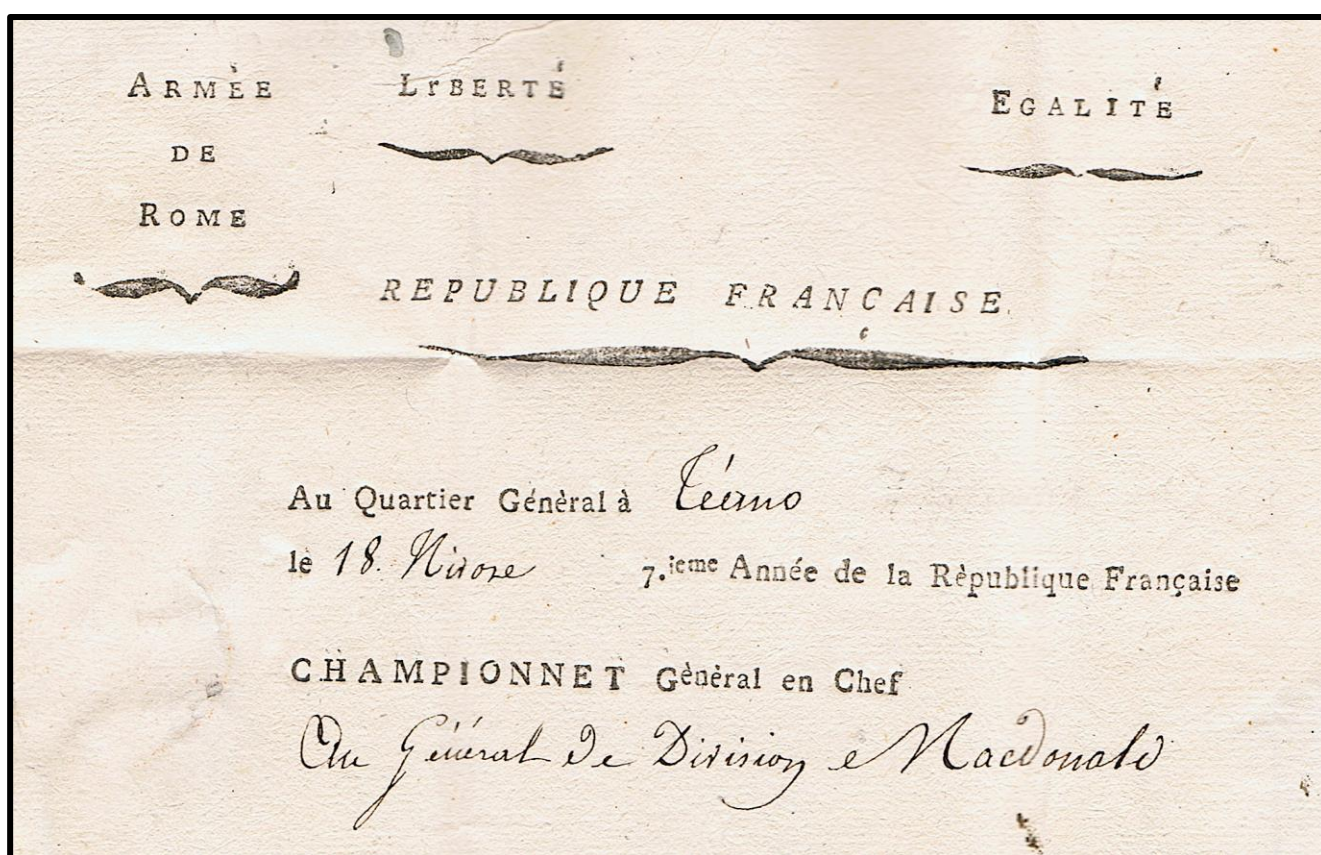 ARMÈE
DE
ROME
LIBERTÉ
EGALITÉ
REPUBLIQUE FRANÇAISE
Au Quartier Génèral à Téano
le 18. Nivose 7.ieme Année de la Rèpublique Française
CHAMPIONNET Gènèral en Chef
Au Général de Division e Macdonald